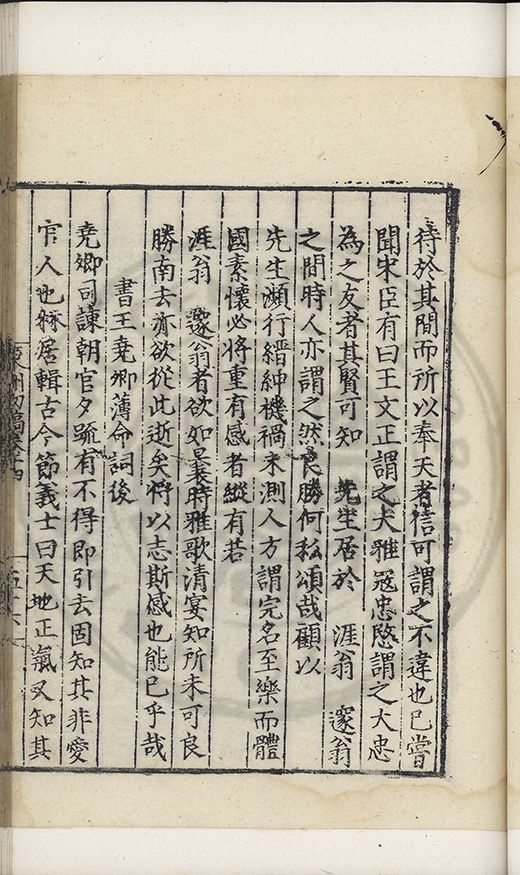 待於其間而所以奉 天者信可謂之不違也已嘗
聞宋臣有曰王文正謂之大雅冦忠愍謂之大忠
為之友者其賢可知 先生居於 涯翁 邃翁
之間時人亦謂之然良勝何私頌哉顧以
先生瀕行縉紳機禍未測人方謂完名至樂而體
國素懷必將重有感者縱有若
涯翁 邃翁者欲如曩時雅歌清宴知所未可良
勝南去亦欲從此逝矣將以志斯感也能已乎哉
書王堯卿薄命詞後
堯卿司諫朝官夕䟽有不得即引去固知其非愛
官人也𥟖居輯古今節義士曰天地正氣又知其
初稿卷十四